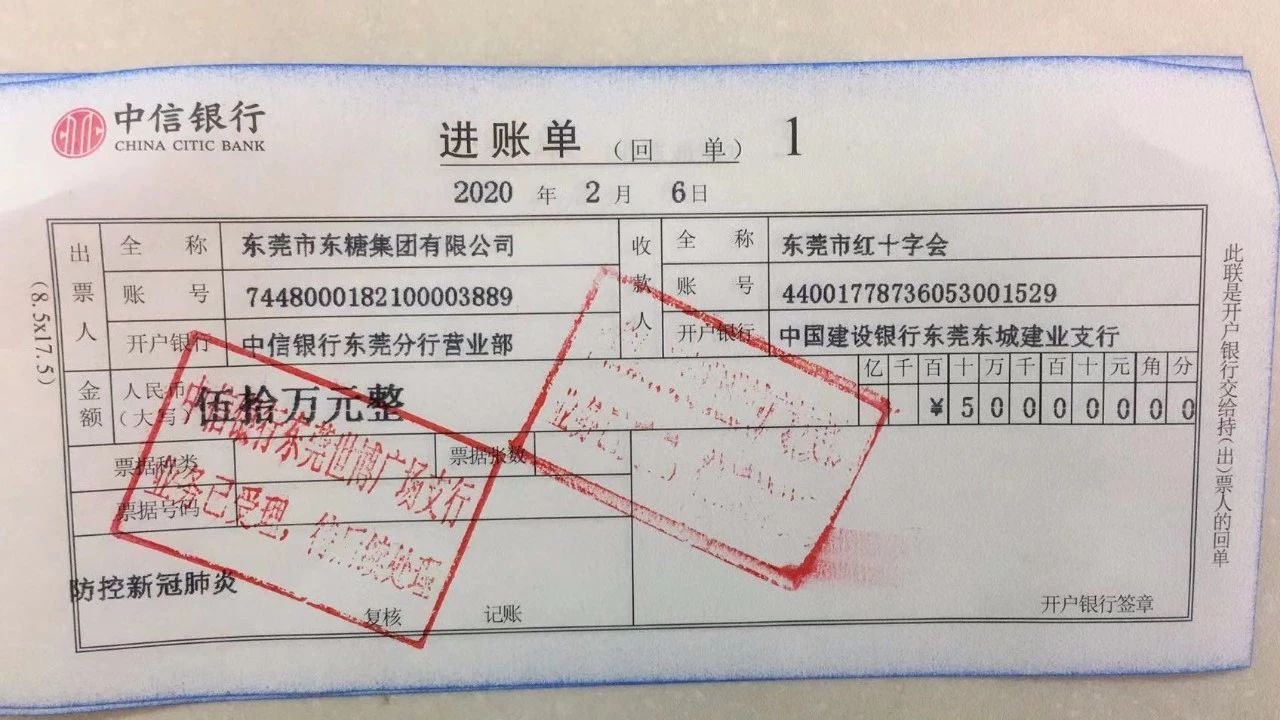 中信银行
CHINA CITIC BANK
进账单 (回 单) 1
2020 年 2 月 6日
出票人
全 称 东莞市东糖集团有限公司
账 号 7448000182100003889
开户银行 中信银行东莞分行营业部
收款人
全 称 东莞市红十字会
账 号 44001778736053001529
开户银行 中国建设银行东莞东城建业支行
金额 人民币(大写) 伍拾万元整
亿 千 百 十 万 千 百 十 元 角 分
¥ 5 0 0 0 0 0 0 0
票据种类 票据张数
票据号码
防控新冠肺炎
复核 记账
开户银行签章
中信银行东莞世博广场支行
业务已受理,待后续处理
此联是开户银行交给持(出)票人的回单
(8.5x17.5)